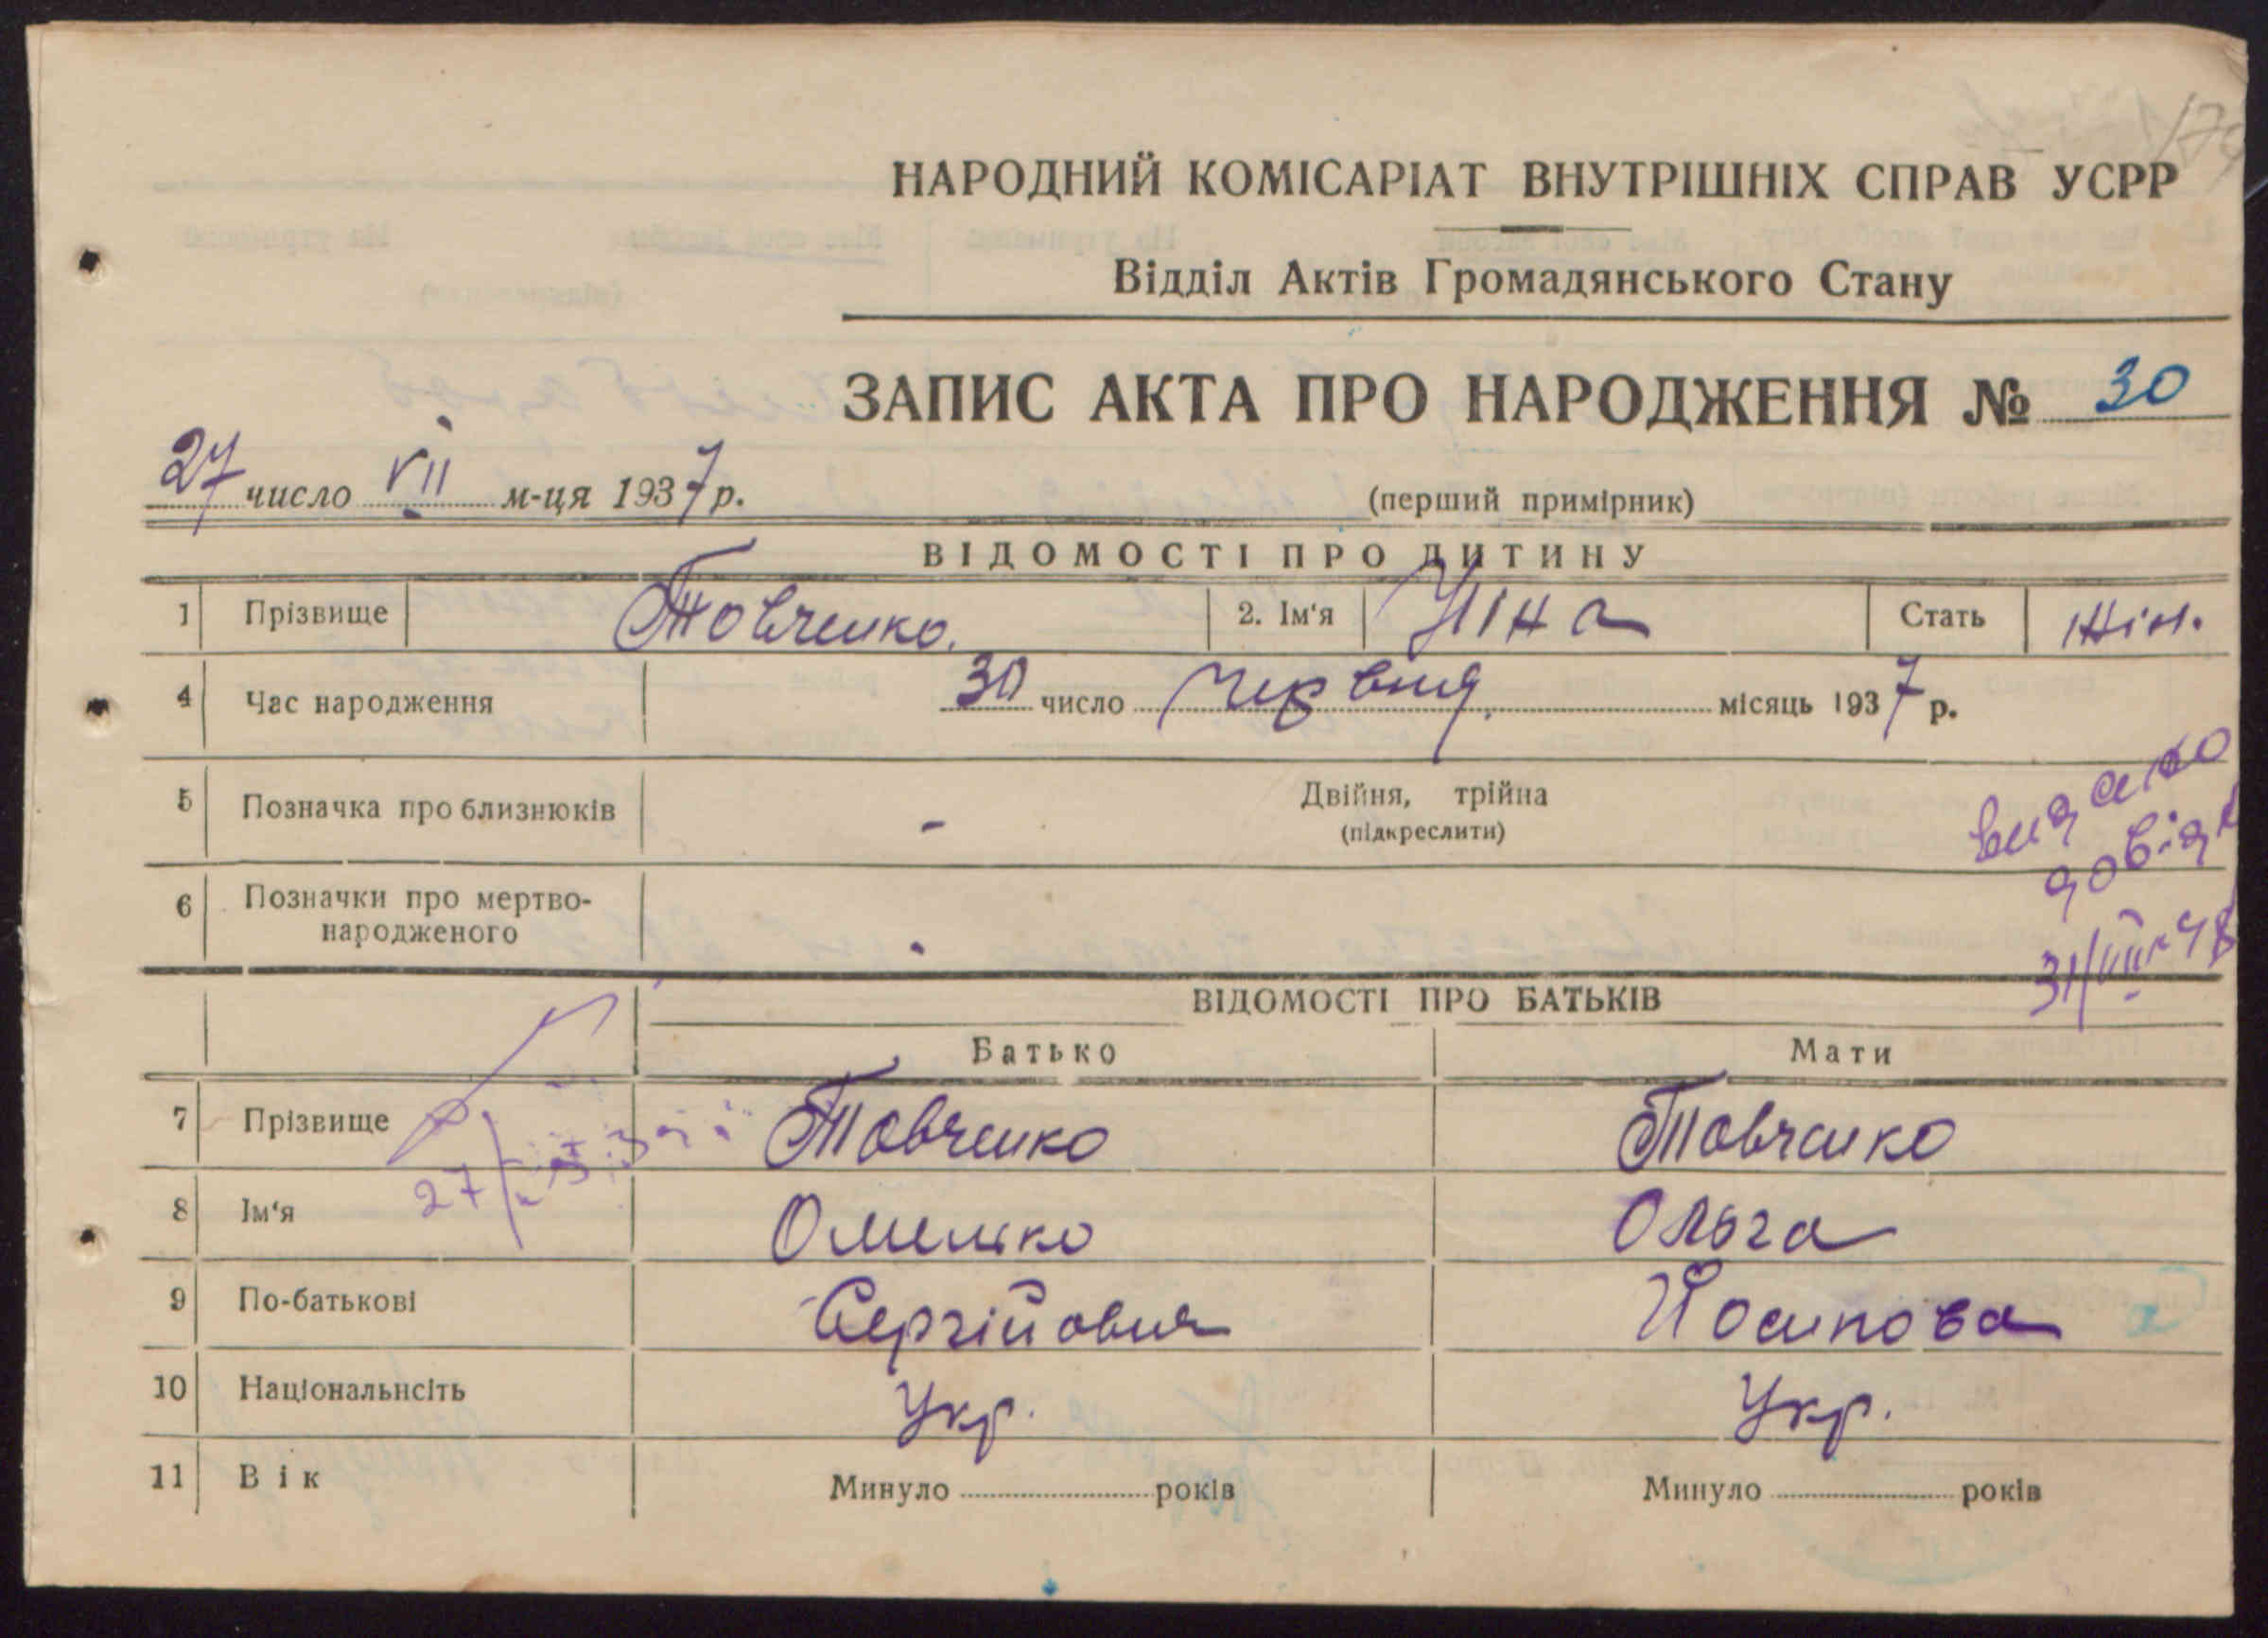 НАРОДНИЙ КОМІСАРІАТ ВНУТРІШНІХ СПРАВ УСРР
Відділ Актів Громадянського Стану
ЗАПИС АКТА ПРО НАРОДЖЕННЯ № 30
27 число VII м-ця 1937 р.
(перший примірник)
ВІДОМОСТІ ПРО ДИТИНУ
1 Прізвище Товченко. 2. Ім'я Ніна Стать жін.
4 Час народження 30 число червня. місяць 1937 р.
5 Позначка про близнюків - Двійня, трійна
(підкреслити)
видано
довідк
31/VII-48
6 Позначки про мертво-
народженого -
ВІДОМОСТІ ПРО БАТЬКІВ
Батько Мати
7 Прізвище Товченко Товченко
27/
8 Ім'я Омелько Ольга
9 По-батькові Сергійович Йосипова
10 Національнсіть Укр. Укр.
11 Вік Минуло років Минуло років